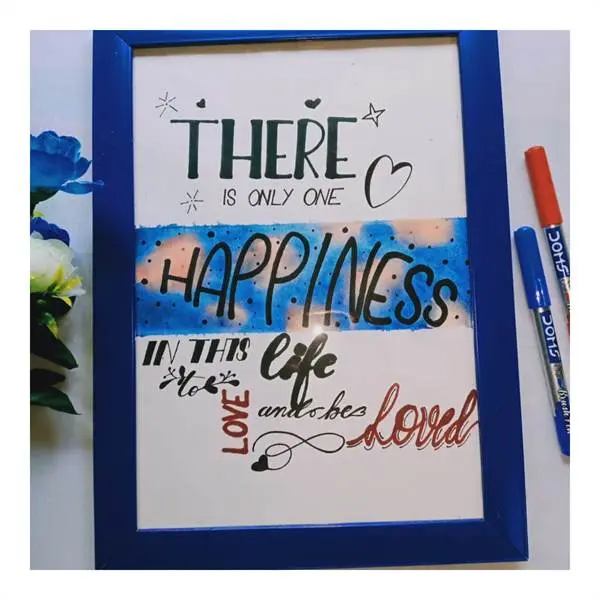 THERE
IS ONLY ONE
HAPPINESS
IN THIS life
to LOVE and be Loved
DOMS
DOMS